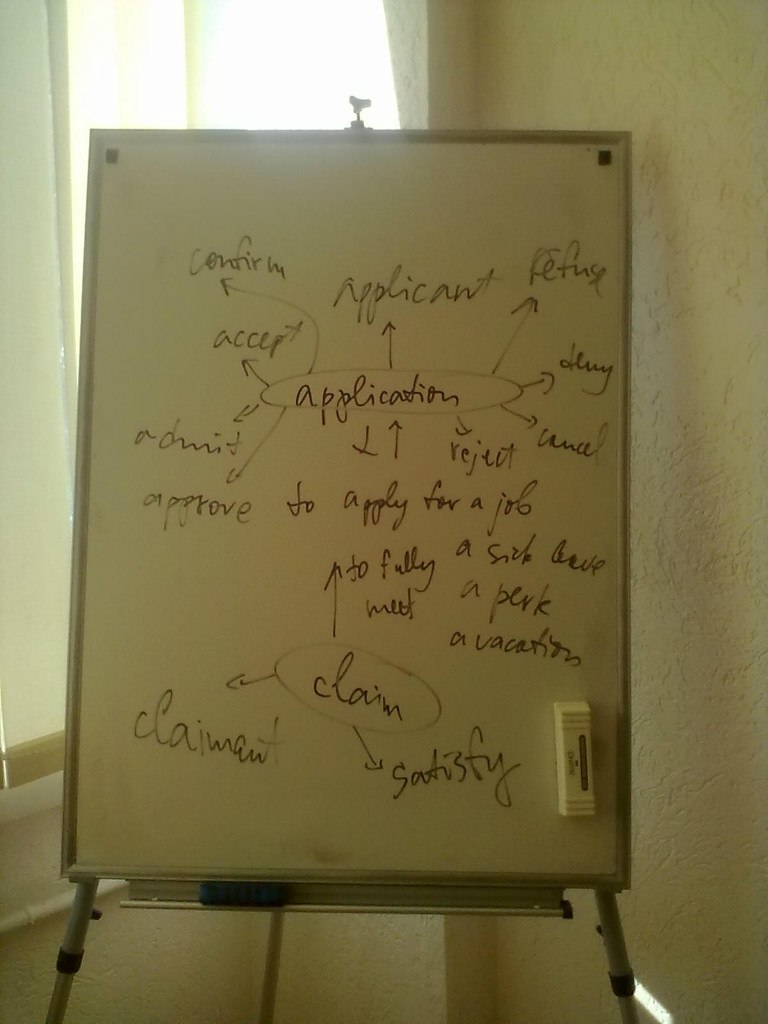 confirm
applicant
refuse
accept
deny
application
admit
reject
cancel
approve
to apply for a job
a sick leave
to fully
meet
a perk
a vacation
claim
claimant
satisfy